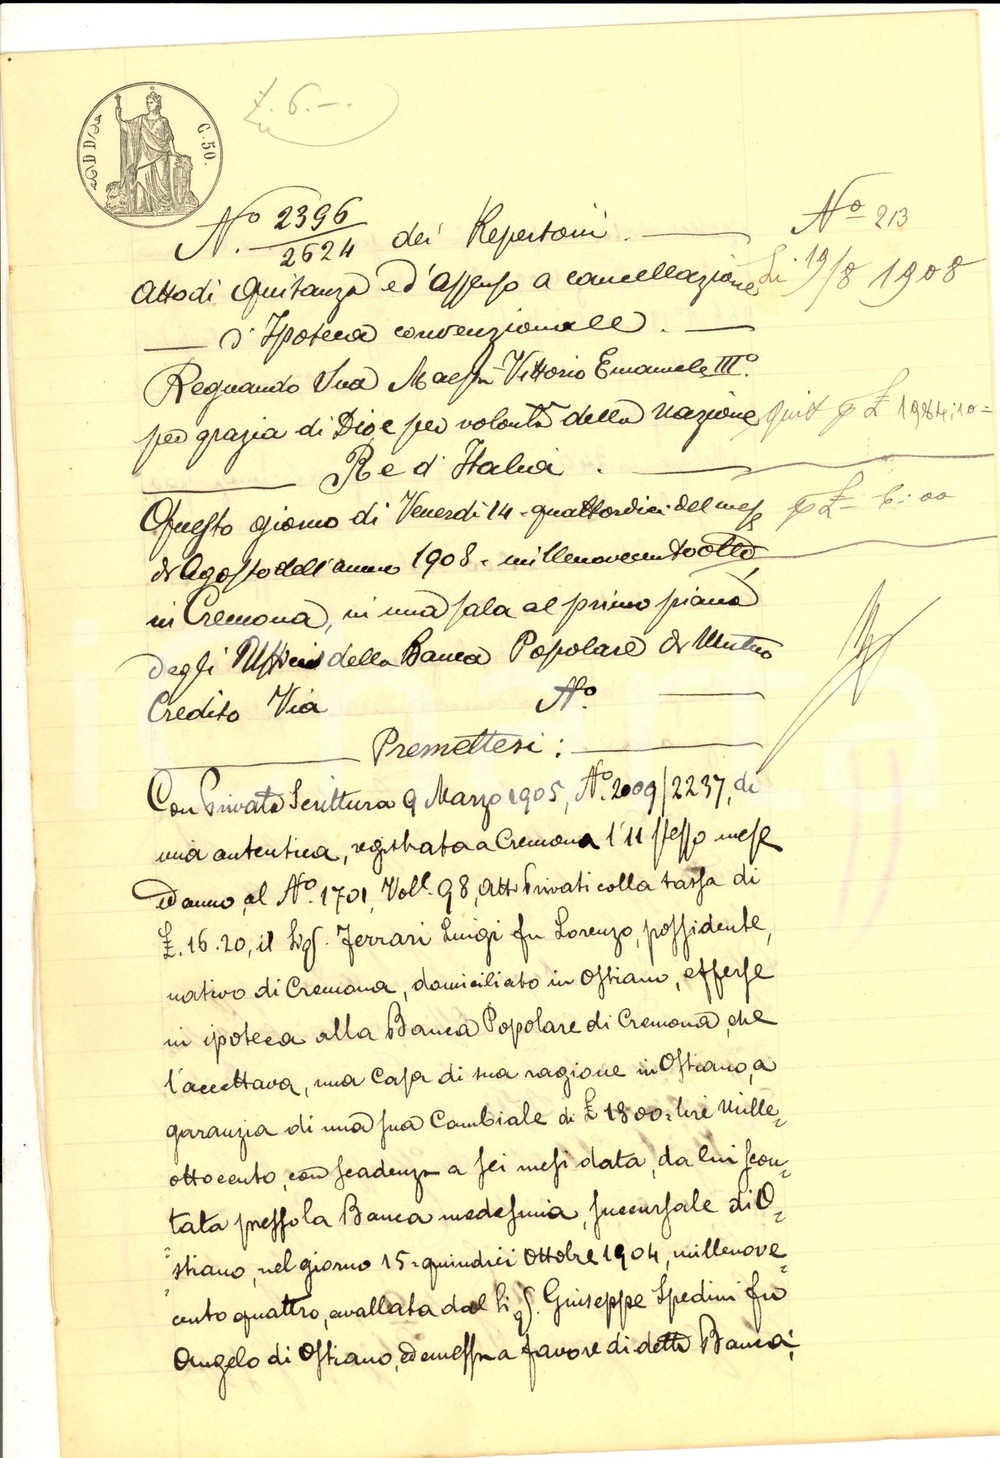 C. 50.
£. 6.-.
N.º 2396/2624 dei Repertori.
N.º 213
Atto di Quitanza ed'Assenso a cancellazione
Li 19/8 1908
d'Ipoteca convenzionale.
Regnando Sua Maestà Vittorio Emanuele IIIº.
per grazia di Dio, e per volontà della Nazione
quit £ 1984.10=
Re d'Italia.
Questo giorno di Venerdì 14= quattordici del mese
£ 6:00
di Agosto dell'anno 1908= millenovecentootto,
in Cremona, in una sala al primo piano
degli Uffici della Banca Popolare di Mutuo
Credito Via Nº.
Premettesi:
Con Privata Scrittura 9 Marzo 1905, Nº. 2009/2237, di
mia autentica, registrata a Cremona l'11 stesso mese
ed anno, al Nº. 1701, Vol. 98, Atti Privati colla tassa di
£. 16.20, il Sig. Ferrari Luigi fu Lorenzo, possidente,
nativo di Cremona, domiciliato in Ostiano, offerse
in ipoteca alla Banca Popolare di Cremona, che
l'accettava, una Casa di sua ragione in Ostiano, a
garanzia di una sua Cambiale di £ 1800= lire Mille=
ottocento, con scadenza a sei mesi data, da lui scon=
tata presso la Banca medesima, succursale di O=
=stiano, nel giorno 15= quindici Ottobre 1904, millenove=
=cento quattro, avallata dal Sig. Giuseppe Spedini fu
Angelo di Ostiano, ed emessa a favore di detta Banca;